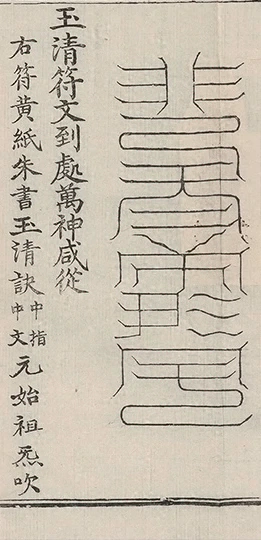 玉清符文到處萬神咸從
右符黃紙朱書玉清訣中指中文元始祖炁吹